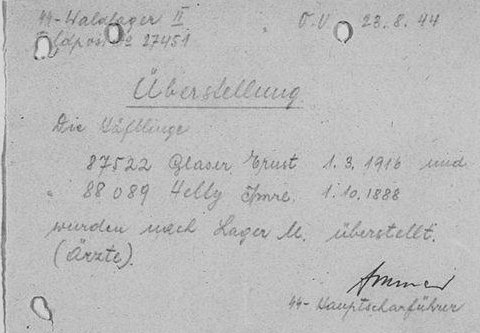 SS-Waldlager II O.U. 23.8.44
Feldpost No 27451
Überstellung
Die Häftlinge
87522 Blaser Ernst 1.3.1916 und
" 88089 Helly Imre 1.10.1888
wurden nach Lager M. überstellt.
(Ärzte).
SS-Hauptscharführer